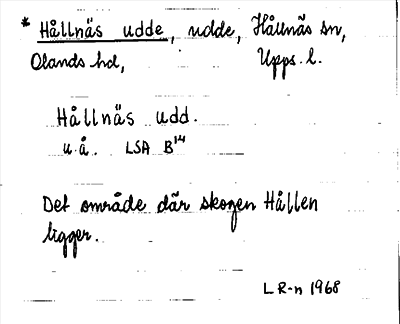 * Hållnäs udde, udde, Hållnäs sn,
Olands hd, Upps. l.
Hållnäs udd.
u.å. LSA B¹⁴
Det område där skogen Hållen
ligger.
L R-n 1968